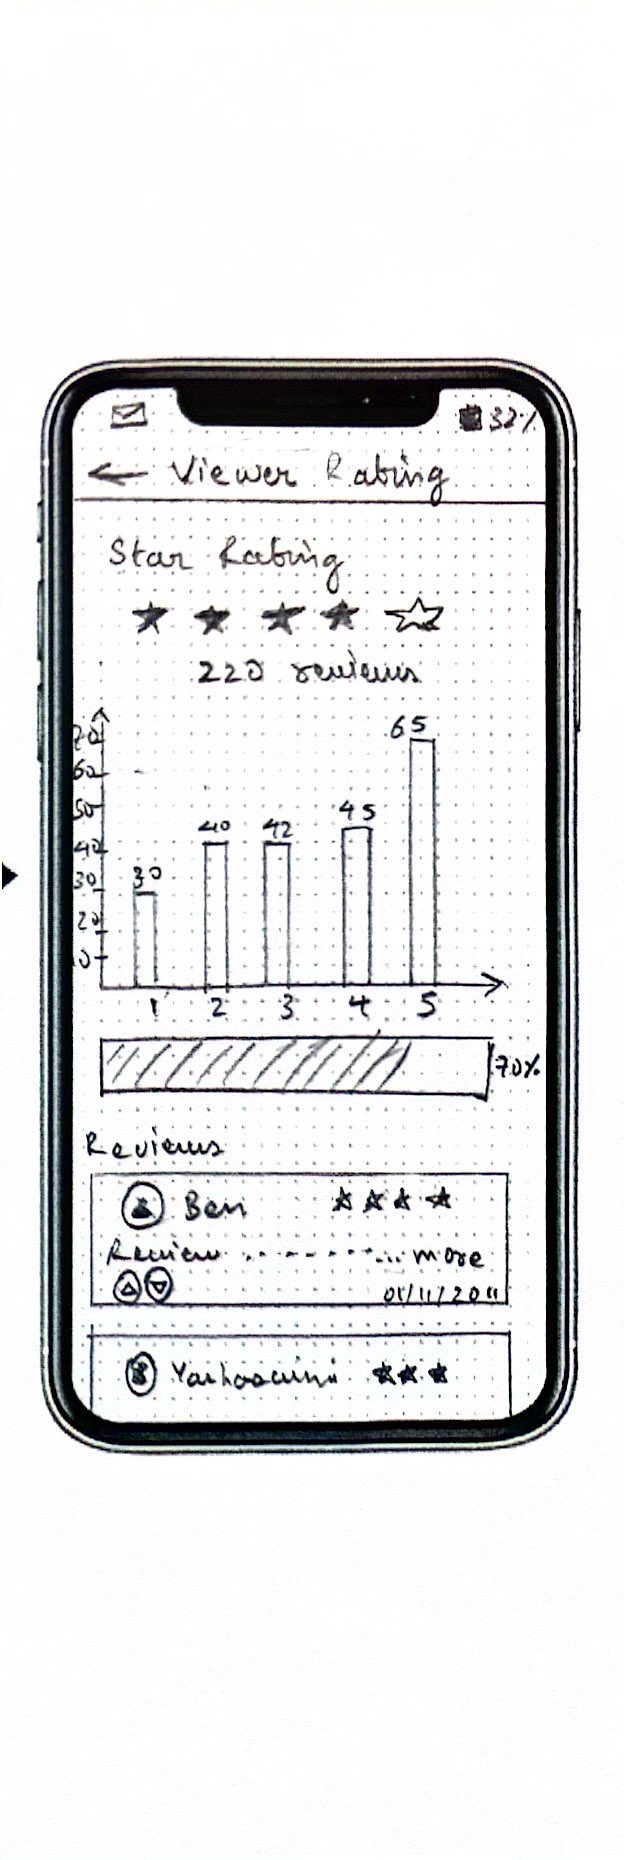 32%
← Viewer Rating
Star Rating
220 reviews
70
60
50
40
30
20
10
30
40
42
45
65
1 2 3 4 5
70%
Reviews
Ben
Review ........... more
01/11/2011